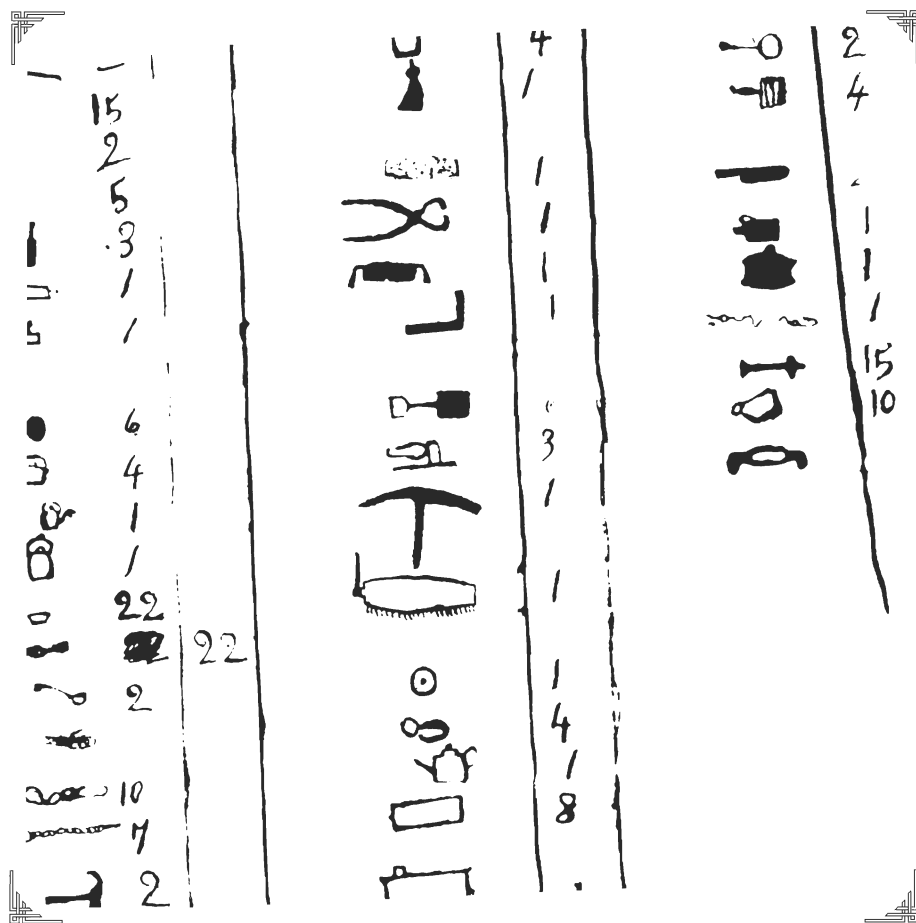 1
15
2
5
3
1
1
6
4
1
1
22
22
2
10
7
2
4
1
1
1
1
1
3
1
1
1
4
1
8
2
4
1
1
1
15
10